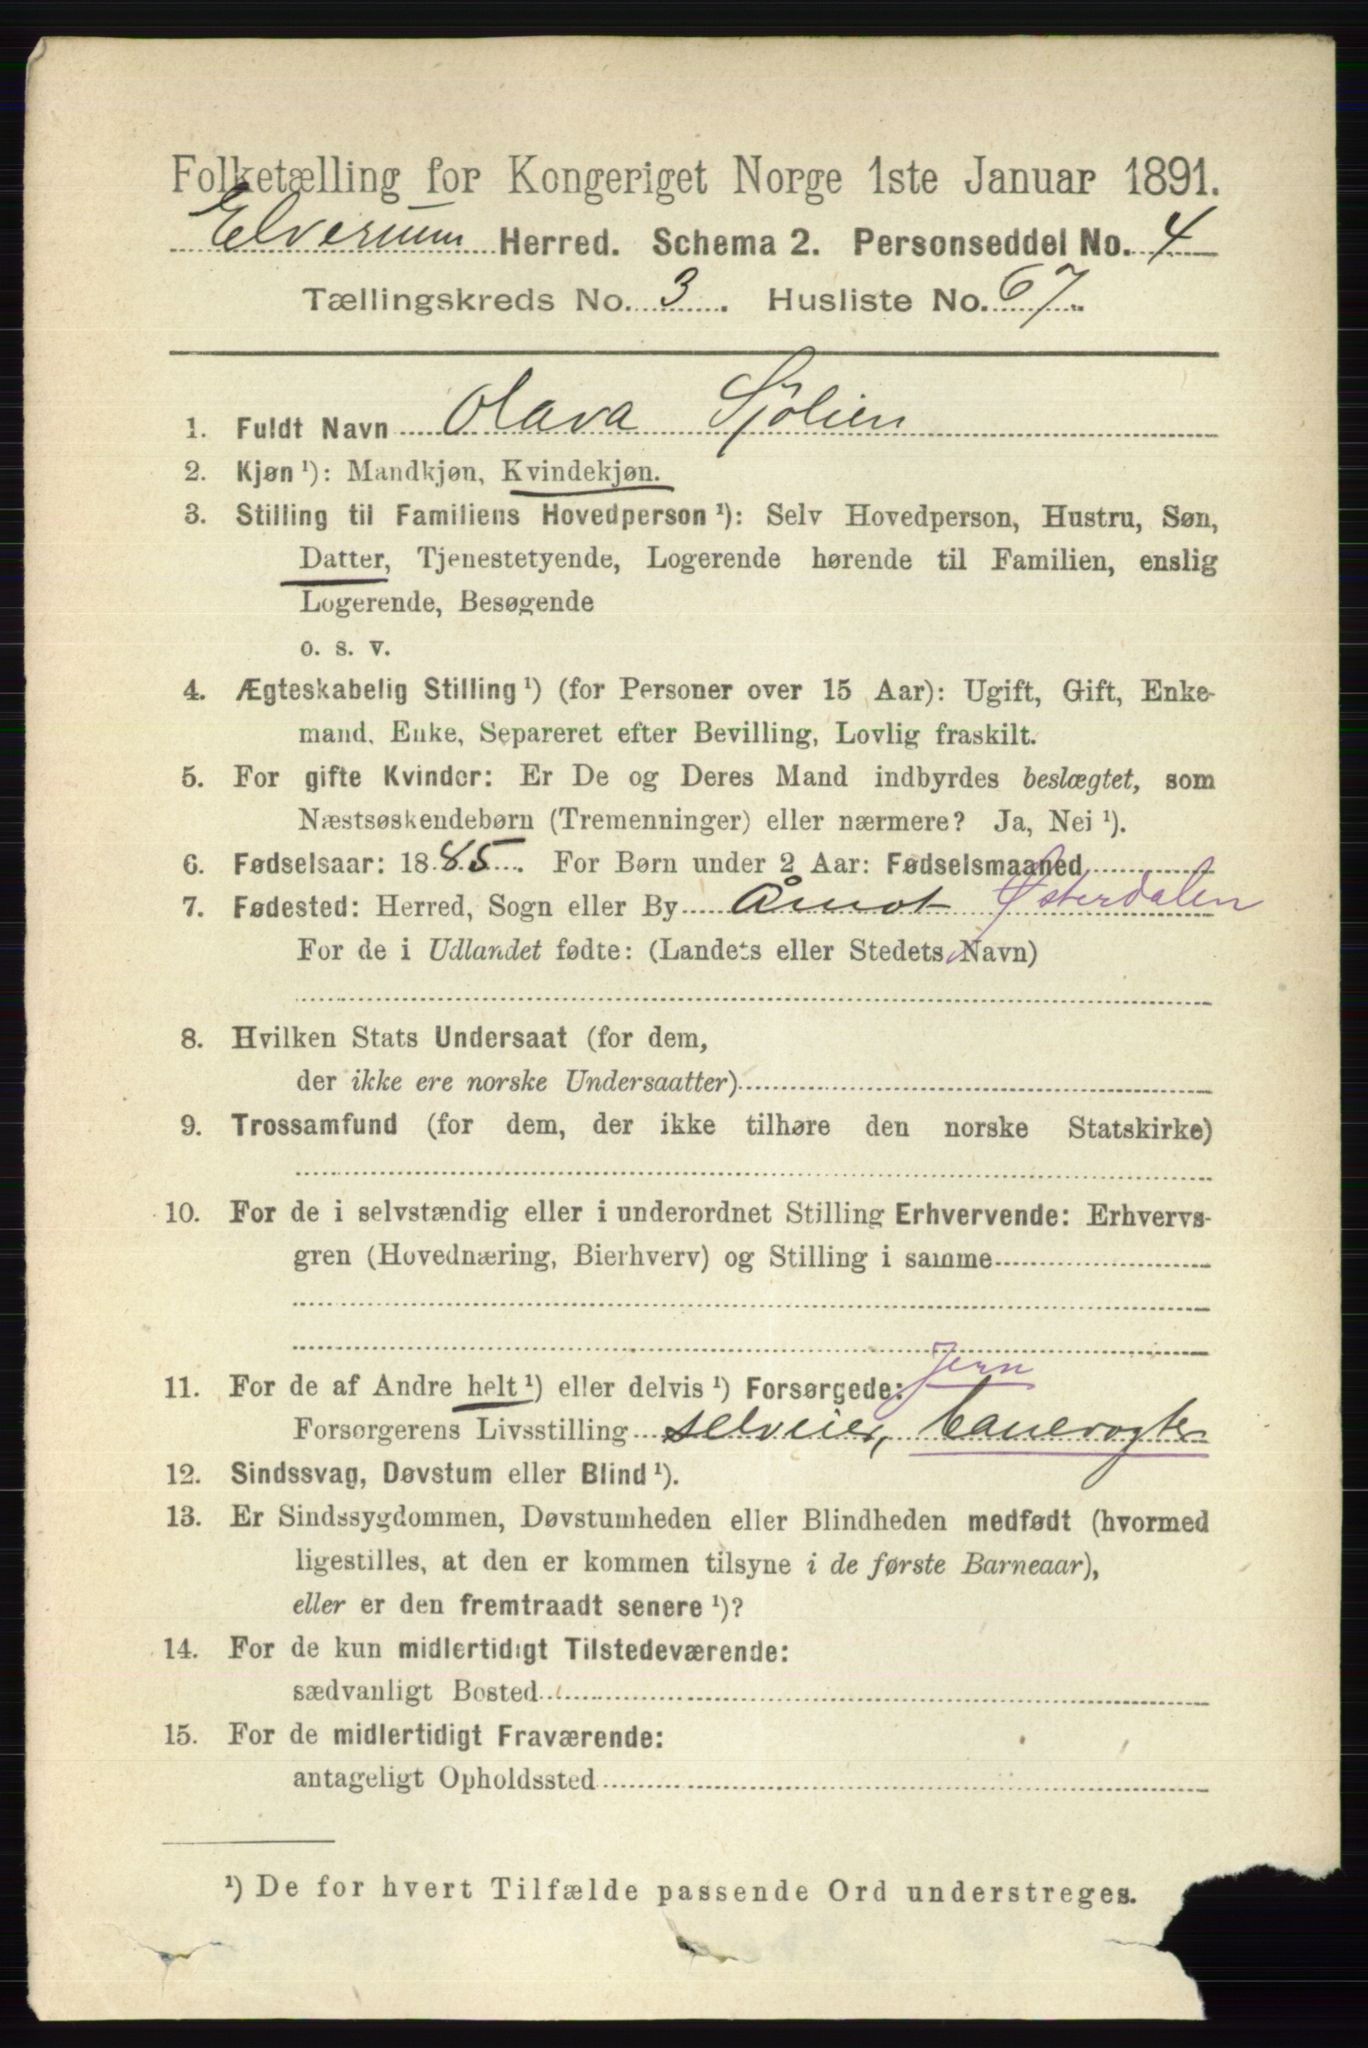 Folketælling for Kongeriget Norge 1ste Januar 1891.
Elverum Herred. Schema 2. Personseddel No. 4
Tællingskreds No. 3. Husliste No. 67.
1. Fuldt Navn Olava Sjølien
2. Kjøn ¹): Mandkjøn, Kvindekjøn.
3. Stilling til Familiens Hovedperson ¹): Selv Hovedperson, Hustru, Søn,
Datter, Tjenestetyende, Logerende hørende til Familien, enslig
Logerende, Besøgende
o. s. v.
4. Ægteskabelig Stilling ¹) (for Personer over 15 Aar): Ugift, Gift, Enke-
mand, Enke, Separeret efter Bevilling, Lovlig fraskilt.
5. For gifte Kvinder: Er De og Deres Mand indbyrdes beslægtet, som
Næstsøskendebørn (Tremenninger) eller nærmere? Ja, Nei ¹).
6. Fødselsaar: 1885. For Børn under 2 Aar: Fødselsmaaned
7. Fødested: Herred, Sogn eller By Åmot Østerdalen
For de i Udlandet fødte: (Landets eller Stedets Navn)
8. Hvilken Stats Undersaat (for dem,
der ikke ere norske Undersaatter)
9. Trossamfund (for dem, der ikke tilhøre den norske Statskirke)
10. For de i selvstændig eller i underordnet Stilling Erhvervende: Erhvervs-
gren (Hovednæring, Bierhverv) og Stilling i samme
Jern
11. For de af Andre helt ¹) eller delvis ¹) Forsørgede:
Forsørgerens Livsstilling selveier, banevogter
12. Sindssvag, Døvstum eller Blind ¹).
13. Er Sindssygdommen, Døvstumheden eller Blindheden medfødt (hvormed
ligestilles, at den er kommen tilsyne i de første Barneaar),
eller er den fremtraadt senere ¹)?
14. For de kun midlertidigt Tilstedeværende:
sædvanligt Bosted
15. For de midlertidigt Fraværende:
antageligt Opholdssted
¹) De for hvert Tilfælde passende Ord understreges.